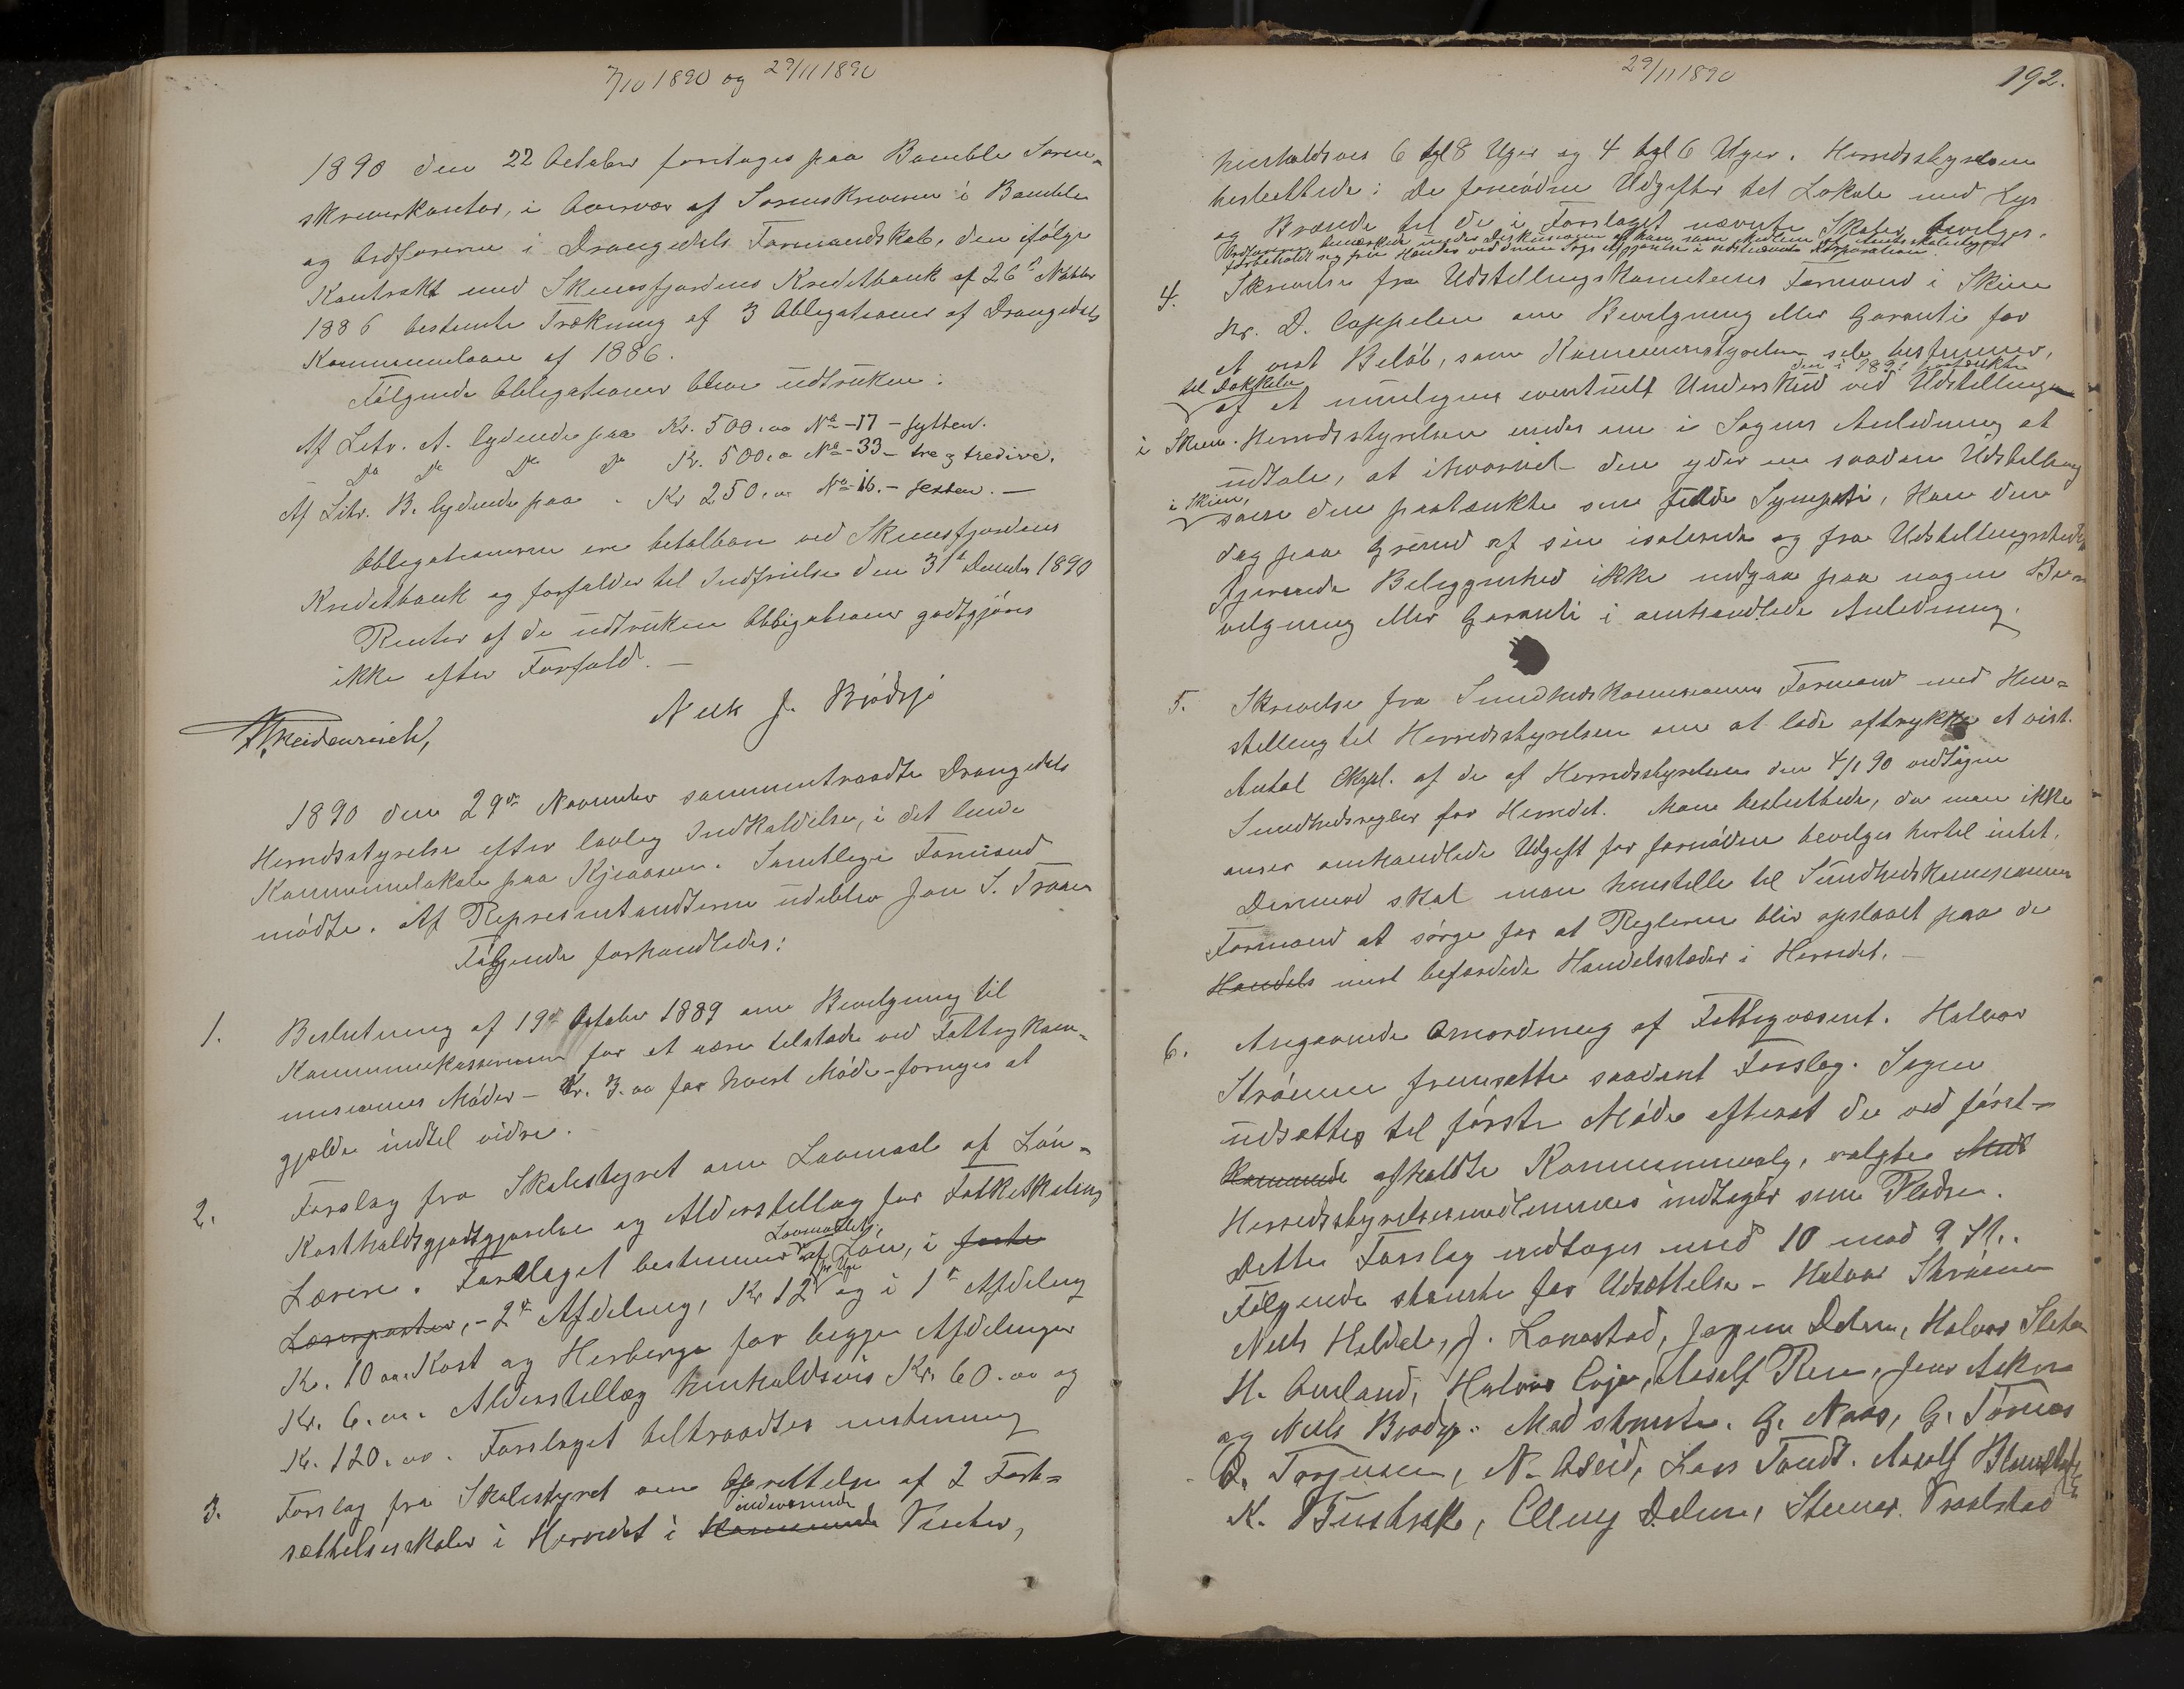 7/10 1890 og 29/11 1890
1890 den 22 October foretoges paa Bamble Soren-
skriverkontor, i Overvær af Sorenskriveren i Bamble
og Ordføreren i Drangedals Formandskab, den ifølge
Kontrakt med Skiensfjordens Kreditbank af 26de Novbr
1886 bestemte Trækning af 3 Obligationer af Drangedals
Kommunelaan af 1886.
Følgende Obligationer blev udtrukne:
Af Litr. A. lydende paa Kr. 500.00 No - 17 - sytten.
Do Do Do Do Kr. 500.00 No - 33 - tre og tredive.
Af Litr. B. lydende paa " Kr 250.00 No - 16. - sexten. -
Obligationerne ere betalbare ved Skiensfjordens
Kreditbank og forfalder til Indfrielse den 31te December 1890
Renter af de udtrukne Obligationer godtgjøres
ikke efter Forfald. -
Heidenreich, Niels J. Bjødsjø
1890 den 29de November sammentraadte Drangedals
Herredsstyrelse efter lovlig Indkaldelse, i det leiede
Kommunelokale paa Kjeaasen. Samtlige Formænd
mødte. Af Repræsentandterne udeblev Jon S. Traaen
Følgende forhandledes:
1. Beslutning af 19de October 1889 om Bevilgning til
Kommunekassereren for at være tilstede ved Fattigkom-
missionens Møder - Kr. 3.00 for hvert Møde - fornyes at
gjælde indtil videre.
2. Forslag fra Skolestyret om Lovmaal af Løn-
Kostholdsgodtgjørelse og Alderstillæg for Folkeskolens
Lærere. Forslaget bestemmer Lovmaalets af Løn, i faste
Lærerposter, - 2den Afdeling, Kr 12 pr Uge og i 1ste Afdeling
Kr. 10.00. Kost og Herberge for begge Afdelinger
Kr. 6.00. Alderstillæg henholdsvis Kr. 60.00 og
Kr. 120.00. Forslaget biltraadtes enstemmig
3. Forslag fra Skolestyret om Oprettelse af 2 Fort-
sættelsesskoler i Herredet i Kommende indeværende Vinter,
29/11 1890
192.
henholdsvis 6 tgl 8 Uger og 4 tgl 6 Uger. Herredsstyrelsen
besluttede: De fornødne Udgifter til Lokale med Lys
og Brænde til de i Forslaget nævnte Skoler bevilges.
Ordføreren bemærkede under Diskussionen at han som Medlem af Amtsskolestyret
forbeholdt sig frie Hænder ved denne Sags Afgjørelse i nævnte Korporation.
4. Skrivelse fra Udstillingskomiteens Formand i Skien
Hr. D. Cappelen om Bevilgning eller Garanti for
et vist Beløb, som Kommunestyrelsen selv bestemmer,
til Dækkelse af et muligens eventuelt Underskud ved den i 1891 paatænkte Udstilling
i Skien. Herredsstyrelsen under om i Sagens Anledning at
udtale, at ihvorvel den yder en saadan Udstilling
i Skien, som den paatænkte sin fulde Sympati, kan den
dog paa Grund af sin isolerede og fra Udstillingsstedet
fjernede Beliggenhed ikke indgaa paa nogen Be-
vilgning eller Garanti i omhandlede Anledning.
5. Skrivelse fra Sundhedskommissionens Formand med Hen-
stilling til Herredsstyrelsen om at lade aftrykke et vist
Antal Expl. af de af Herredsstyrelsen den 4/1 90 vedtagne
Sundhedsregler for Herredet. Man besluttede, da man ikke
anser omhandlede Udgift for fornøden bevilges hertil intet.
Derimod skal man henstille til Sundhedskommissionens
Formand at sørge for at Reglerne blir opslaaet paa de
Handels mest befærdede Handelsstæder i Herredet. -
6. Angaaende Omordning af Fattigvæsenet. Halvor
Strømme fremsatte saadant Forslag. Sagen
udsættes til første Møde efterat de ved først-
kommende afholdte Kommunevalg, valgte Med
Herredsstyrelsesmedlemmer indtager sine Pladse.
Dette Forslag vedtoges med 10 mod 9 St.
Følgende stemte for Udsættelse - Halvor Strømme
Niels Heldal, J. Lonestad, Jørgen Dolven, Halvor Sletn
H. Omland, Halvor Eeje, Aasolf Rui, Jens Aaknæs
og Niels Bjødsjø. Mod stemte. G. Naas, G. Tørnes
O. Torjusen, N. Oseid, Lars Tveidt. Aasolf Blomdal
K. Bustrak, Elling Dolven, Steinar Vraalstad